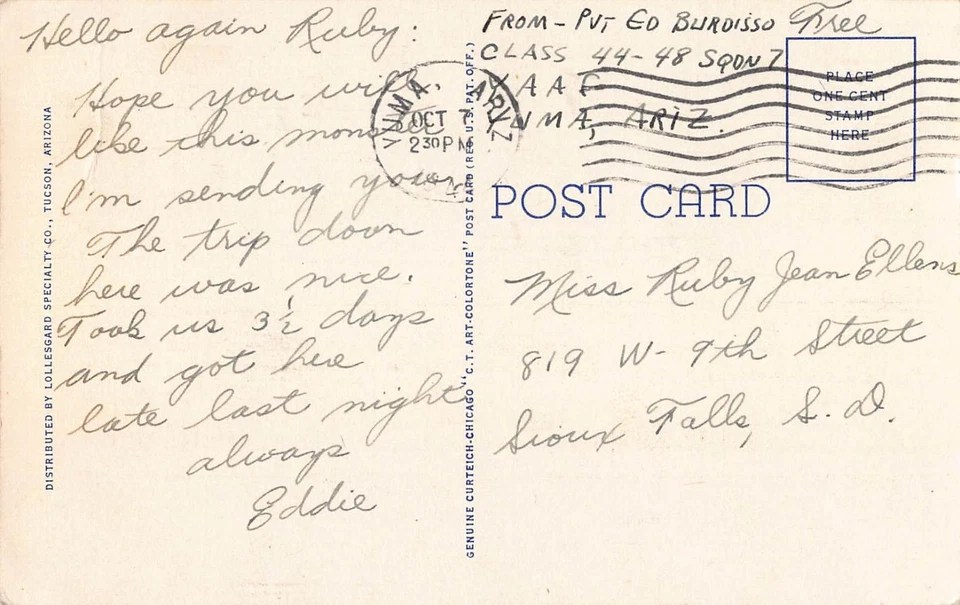 Hello again Ruby:
Hope you will
like this monster
I'm sending you.
The trip down
here was nice.
Took us 3½ days
and got here
late last night
always
Eddie
DISTRIBUTED BY LOLLESGARD SPECIALTY CO., TUCSON, ARIZONA
GENUINE CURTEICH-CHICAGO "C.T. ART-COLORTONE" POST CARD (REG. U.S. PAT. OFF.)
YUMA, ARIZ
OCT 7
230PM
FROM - PVT ED BURDISSO Free
CLASS 44-48 SQDN 7
YAAF
YUMA, ARIZ.
PLACE
ONE CENT
STAMP
HERE
POST CARD
Miss Ruby Jean Ellens
819 W- 9th Street
Sioux Falls, S.D.